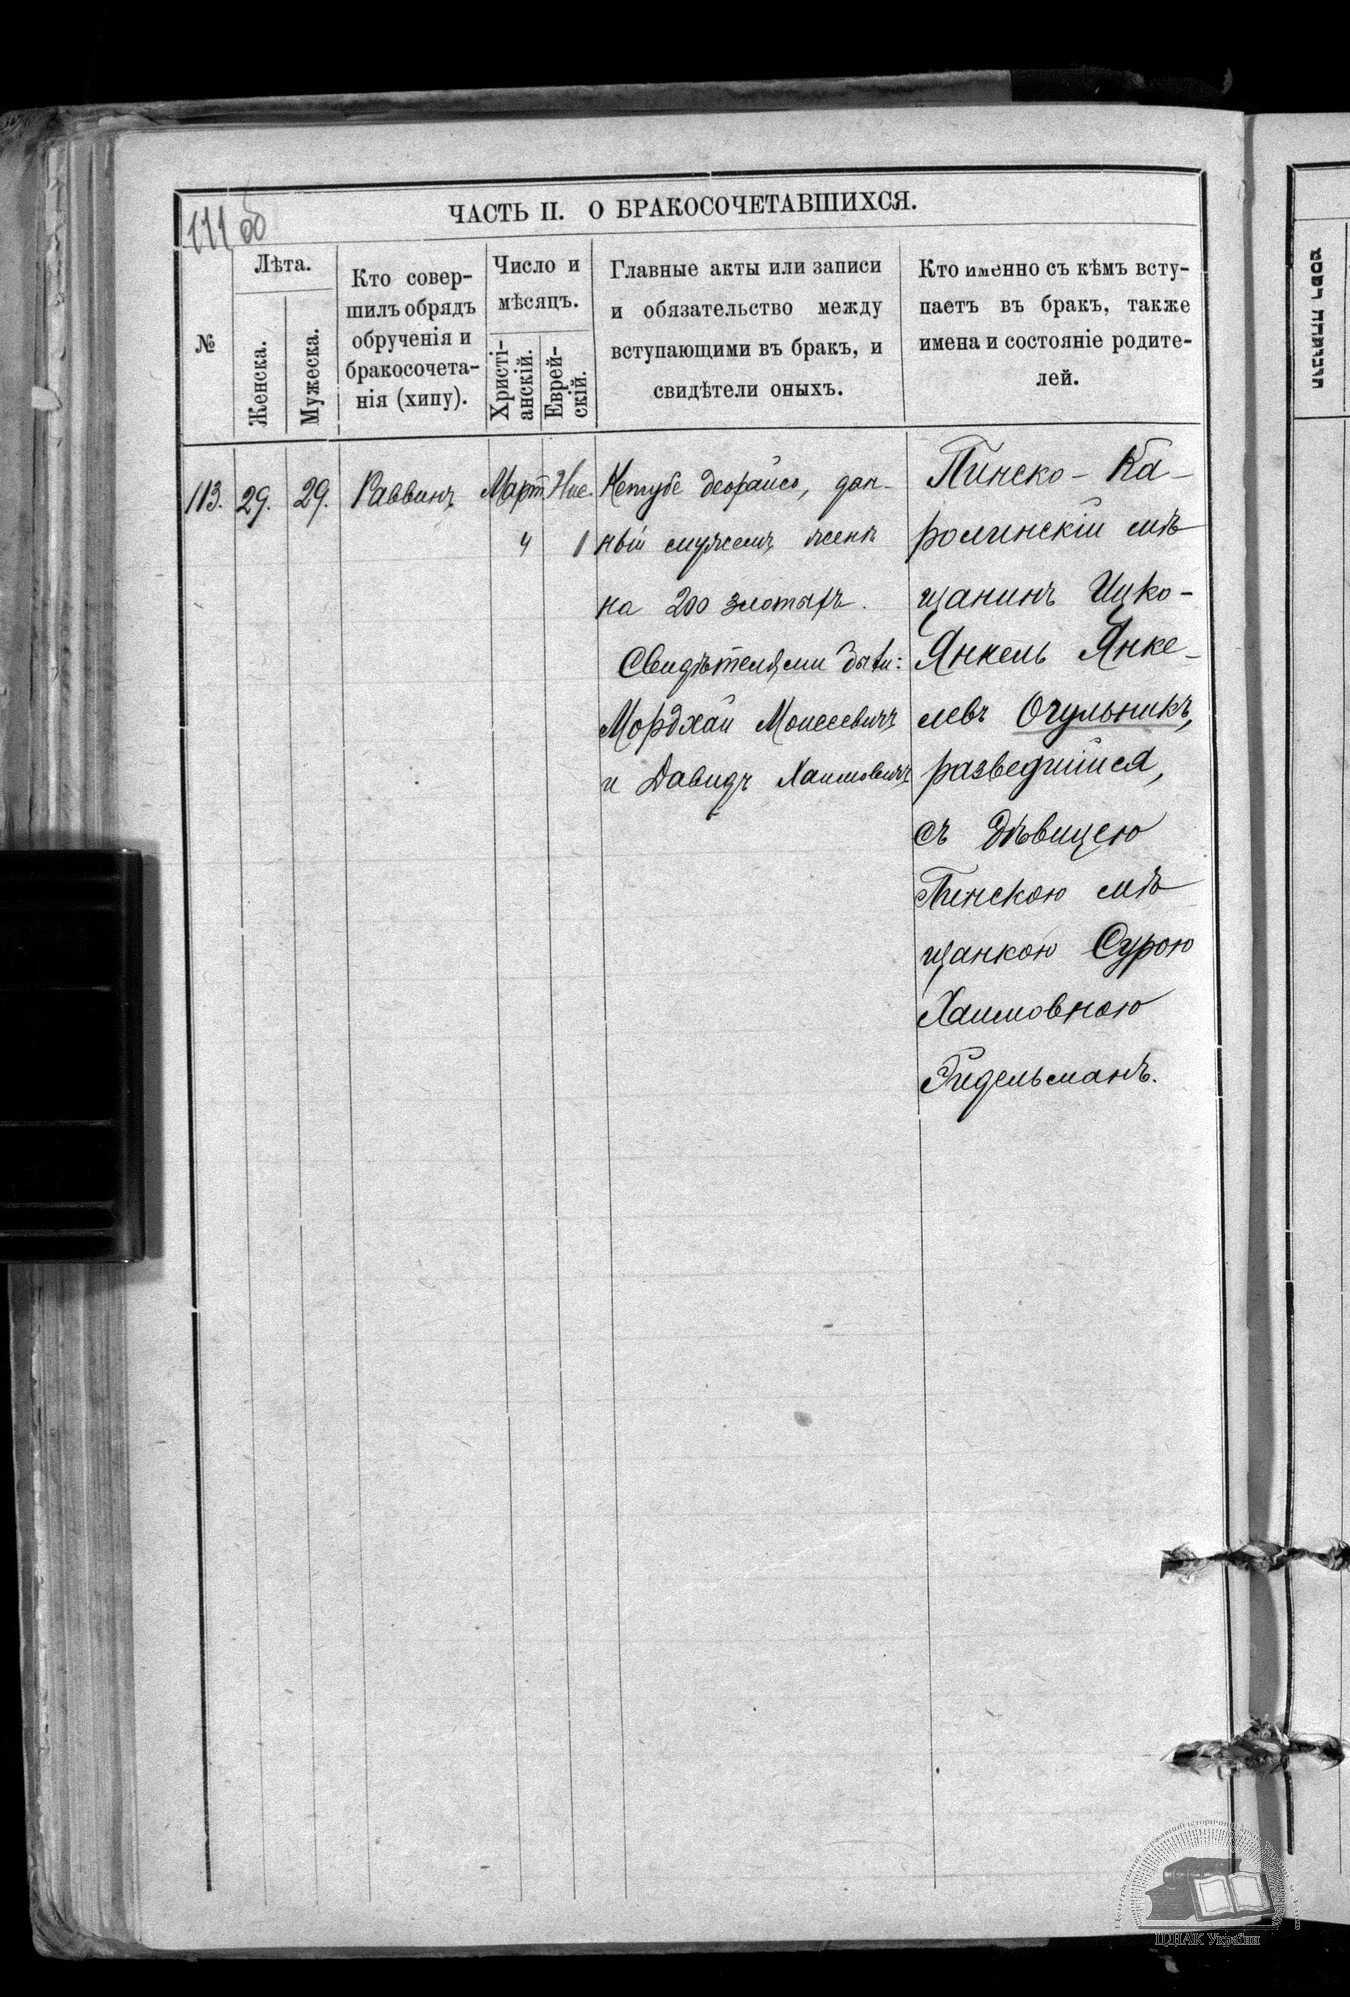 111 об
ЧАСТЬ II. О БРАКОСОЧЕТАВШИХСЯ.
№
Лѣта.
Женска.
Мужеска.
Кто совер-
шилъ обрядъ
обрученія и
бракосочета-
нія (хипу).
Число и
мѣсяцъ.
Христі-
анскій.
Еврей-
скій.
Главные акты или записи
и обязательство между
вступающими въ бракъ, и
свидѣтели оныхъ.
Кто именно съ кѣмъ всту-
паетъ въ бракъ, также
имена и состояніе родите-
лей.
113.
29.
29.
Раввинъ
Март
4
Нис.
1
Кетубе деорайсо, дан-
ный мужемъ женѣ
на 200 злотыхъ.
Свидѣтелями были:
Мордхай Моисеевичъ
и Давидъ Хаимовичъ
Пинско-Ка-
ролинскій мѣ
щанинъ Ицко-
Янкель Янке-
левъ Огульникъ,
разведшійся,
съ дѣвицею
Пинскою мѣ
щанкою Сурою
Хаимовною
Эйдельманъ.
ЦДІАК України